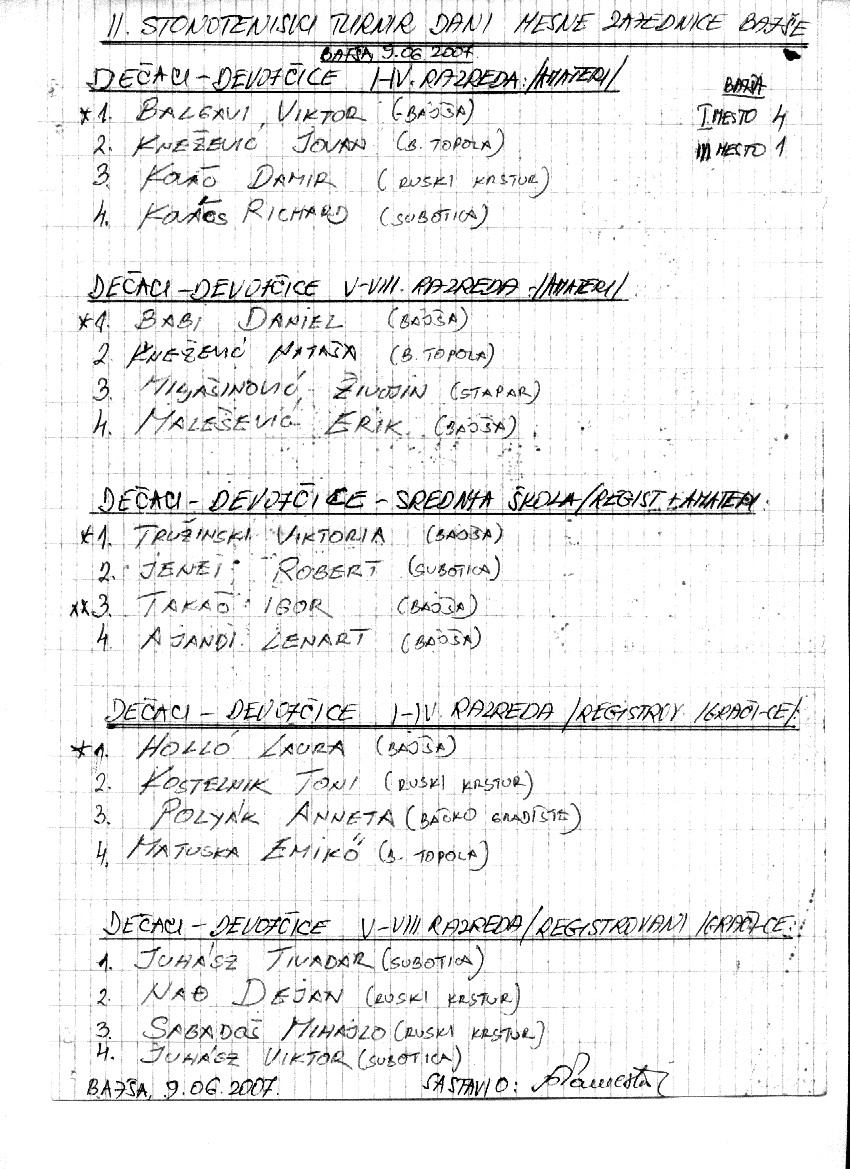 II. STONOTENISKI TURNIR DANI MESNE ZAJEDNICE BAJŠE
BAJŠA, 9.06 2007
DEČACI - DEVOJČICE I-IV. RAZREDA /AMATERI/
BAJŠA
I MESTO 4
III MESTO 1
*1. VIKTOR (BAJŠA)
2. KNEŽEVIĆ JOVAN (B. TOPOLA)
3. DAMIR (RUSKI KRSTUR)
4. RICHARD (SUBOTICA)
DEČACI - DEVOJČICE V-VIII. RAZREDA - /AMATERI/
*1. BABI DANIEL (BAJŠA)
2. KNEŽEVIĆ NATAŠA (B. TOPOLA)
3. MILJAŠINOVIĆ ŽIVOJIN (STAPAR)
4. MALEŠEVIĆ ERIK (BAJŠA)
DEČACI - DEVOJČICE - SREDNJA ŠKOLA /REGIST + AMATERI
*1. TRUŽINSKI VIKTORIA (BAJŠA)
2. JENEI ROBERT (SUBOTICA)
**3. TAKAČ IGOR (BAJŠA)
4. AJANDI LENART (BAJŠA)
DEČACI - DEVOJČICE I-IV. RAZREDA /REGISTROV /GRAČI-CE/
*1. HOLLÓ LAURA (BAJŠA)
2. KOSTELNIK TONI (RUSKI KRSTUR)
3. POLYÁK ANNETA (BAČKO GRADIŠTE)
4. MATUSKA EMIKŐ (B. TOPOLA)
DEČACI - DEVOJČICE V-VIII RAZREDA /REGISTROVANI /GRAČI-CE
1. JUHÁSZ TIVADAR (SUBOTICA)
2. NAĐ DEJAN (RUSKI KRSTUR)
3. SABADOŠ MIHAJLO (RUSKI KRSTUR)
4. JUHÁSZ VIKTOR (SUBOTICA)
BAJŠA, 9.06.2007. SASTAVIO: